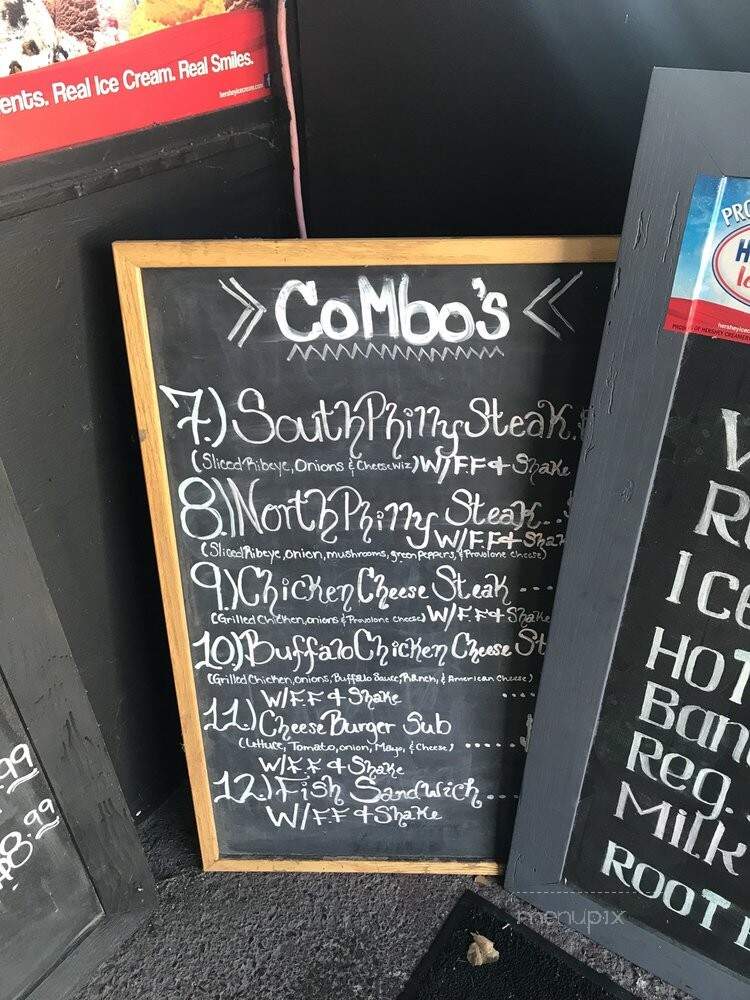 ents. Real Ice Cream. Real Smiles.
hersheyicecream.com
CoMbo's
7.) South Philly Steak.
(Sliced Ribeye, Onions & CheeseWiz) W/F.F & Shake
8.) North Philly Steak..
W/F.F & Shak
(Sliced Ribeye, onion, mushrooms, green Peppers, & Provolone Cheese)
9.) Chicken Cheese Steak ....
(Grilled Chicken, onions & Provolone Cheese) W/F.F & Shake
10.) Buffalo Chicken Cheese St
(Grilled Chicken, onions, Buffalo Sauce, Ranch, & American Cheese)
W/F.F & Shake ....
11.) Cheese Burger Sub
(Lettuce, Tomato, onion, Mayo, & Cheese) .....
W/F.F & Shake
12.) Fish Sandwich...
W/F.F & Shake
.99
8.99
PRO
H
hersheyice
PRODUCT OF HERSHEY CREAMERY
Ice
HOT
Ban
Reg.
Milk
ROOT
menupix